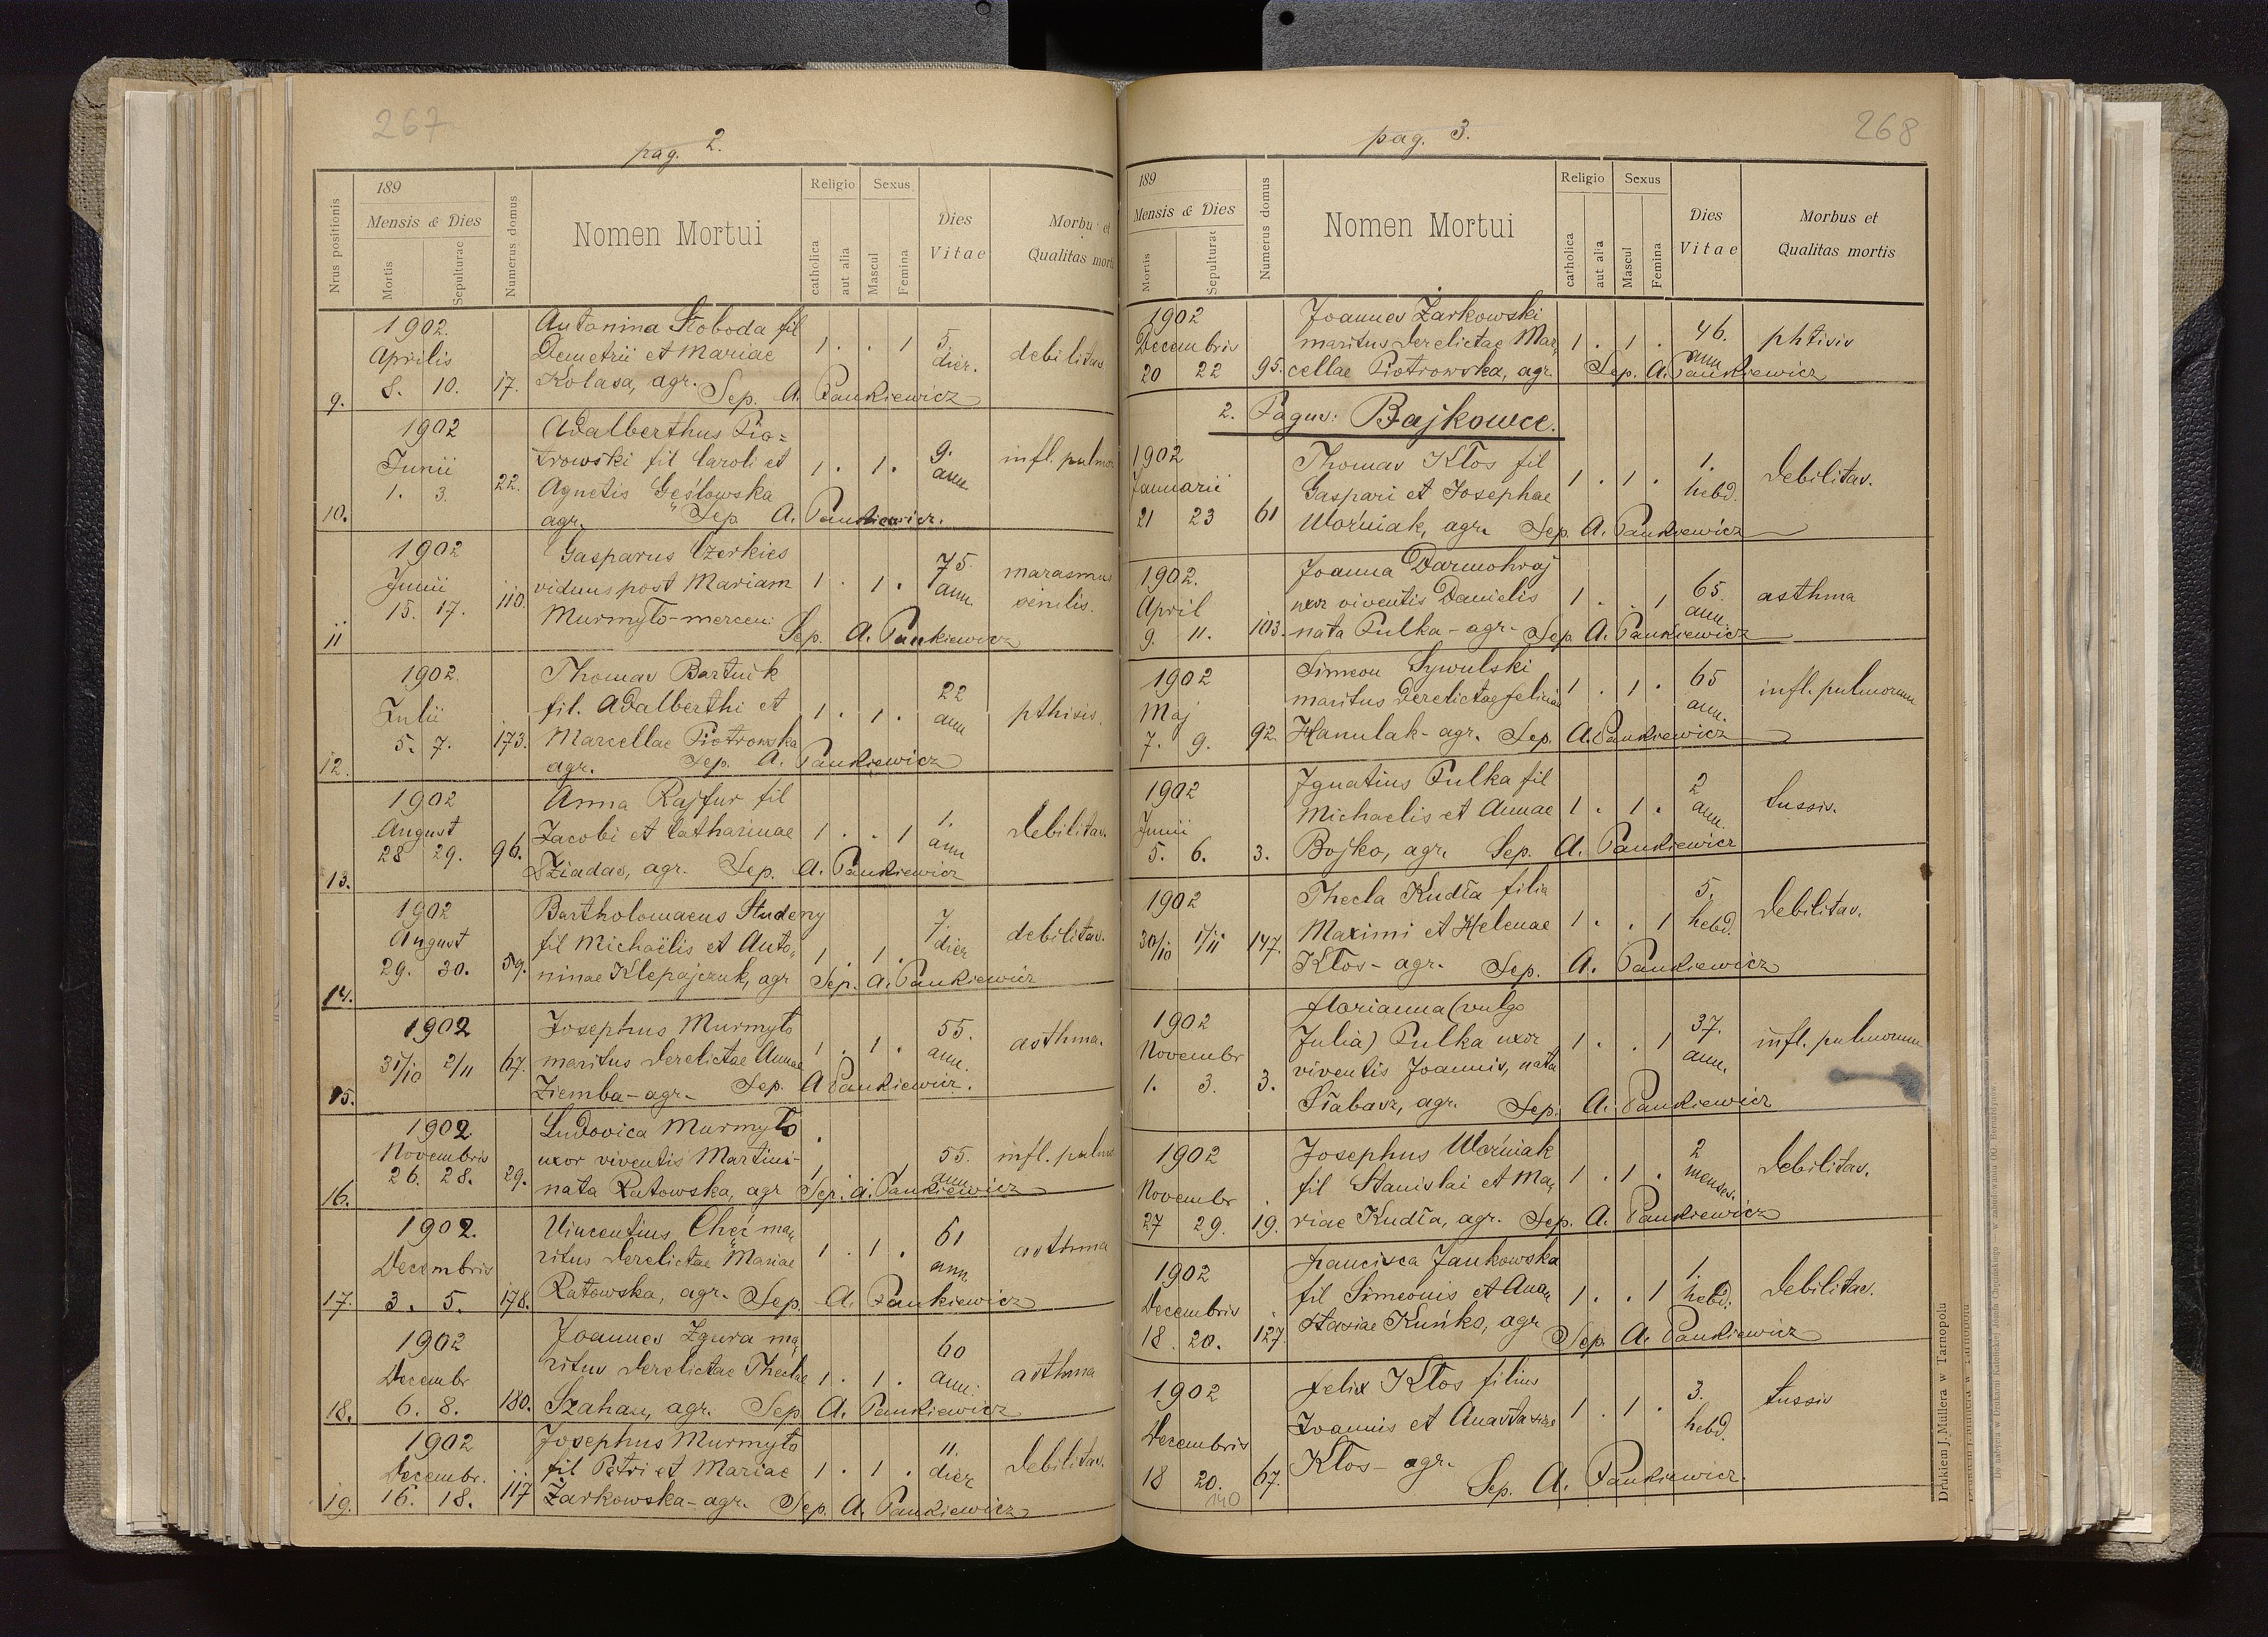 267
pag. 2.
189
Mensis & Dies
Nrus positionis
Mortis
Sepulturae
Numerus domus
Nomen Mortui
Religio
catholica
aut alia
Sexus
Mascul
Femina
Dies
Vitae
Morbus et
Qualitas morti
1902.
Aprilis
9. 8. 10. 17.
Antonina Słoboda fil
Demetrii et Mariae
Kolasa, agr. Sep. A. Pankiewicz
1 . . 1
5.
dier.
debilitas
1902
Junii
10. 1. 3. 22.
Adalberthus Pio=
trowski fil Caroli et
Agnetis Gęsłowska
agr. Sep A. Pankiewicz.
1 . 1 .
9.
ann
infl. pulmo
1902
Junii
11 15. 17. 110.
Gasparus Czerkies
viduus post Mariam
Murmyło-mercen. Sep. A. Pankiewicz
1 . 1 .
75.
ann.
marasmus
senilis.
1902.
Julii
12. 5. 7. 173.
Thomas Bartnik
fil. Adalberthi et
Marcellae Piotrowska
agr. Sep. A. Pankiewicz
1 . 1 .
22
ann
pthisis.
1902
August
13. 28 29. 96.
Anna Rajfur fil
Jacobi et Catharinae
Dziadas, agr. Sep. A. Pankiewicz
1 . . 1
1.
ann
debilitas.
1902
August
14. 29. 30. 59.
Bartholomaeus Studeny
fil Michaëlis et Anto„
ninae Klepajczuk, agr Sep. A. Pankiewicz
1 . 1 .
7.
dier
debilitas.
1902
15. 31/10 2/11 67.
Josephus Murmyło
maritus derelictae Annae
Ziemba-agr. Sep. A Pankiewicz.
1 . 1 .
55.
ann.
asthma.
1902.
Novembris
16. 26. 28. 29.
Ludovica Murmyło
uxor viventis Martini-
nata Ratowska, agr Sep. A. Pankiewicz
1 . . 1
55.
ann.
infl. pulmo
1902.
Decembris
17. 3. 5. 178.
Vincentius Cheć ma„
ritus derelictae Mariae
Ratowska, agr. Sep. A. Pankiewicz
1 . 1 .
61
ann.
asthma
1902
Decembr
18. 6. 8. 180.
Joannes Zgura ma„
ritus derelictae Theclae
Szahan, agr. Sep A. Pankiewicz
1 . 1 .
60
ann.
asthma
1902
Decembr.
19. 16. 18. 117
Josephus Murmyło
fil Petri et Mariae
Żarkowska-agr. Sep. A. Pankiewicz
1 . 1 .
11.
dier
debilitas.
268
pag. 3.
189
Mensis & Dies
Mortis
Sepulturae
Numerus domus
Nomen Mortui
Religio
catholica
aut alia
Sexus
Mascul
Femina
Dies
Vitae
Morbus et
Qualitas mortis
1902
Decembris
20 22 95.
Joannes Żarkowski
maritus derelictae Mar„
cellae Piotrowska, agr. Sep. A. Pankiewicz
1 . 1 .
46.
ann
phtisis
2. Pagus: Bajkowce.
1902
Januarii
21 23 61
Thomas Kłos fil
Gaspari et Josephae
Woźniak, agr. Sep. A. Pankiewicz
1 . 1 .
1.
hebd.
debilitas.
1902.
April
9. 11. 103.
Joanna Darmohraj
uxor viventis Danielis
nata Pulka-agr. Sep. A. Pankiewicz
1 . . 1
65.
ann.
asthma
1902
Maj
7. 9. 92.
Simeon Sywulski
maritus derelictae feliciae
Hanulak-agr. Sep. A. Pankiewicz
1 . 1 .
65
ann.
infl. pulmorum
1902
Junii
5. 6. 3.
Ignatius Pulka fil
Michaelis et Annae
Bojko, agr. Sep. A. Pankiewicz
1 . 1 .
2
ann.
tussis.
1902
30/10 1/11 147.
Thecla Kudła filia
Maximi et Helenae
Kłos-agr. Sep. A. Pankiewicz
1 . . 1
5.
hebd.
debilitas.
1902
Novembr
1. 3. 3.
florianna (vulgo
Julia) Pulka uxor
viventis Joannis, nata
Słabasz, agr. Sep. A. Pankiewicz
1 . . 1
37.
ann.
infl. pulmorum
1902
Novembr
27 29. 19.
Josephus Woźniak
fil Stanislai et Ma„
riae Kudła, agr. Sep. A. Pankiewicz
1 . 1 .
2
menses.
debilitas.
1902
Decembris
18. 20. 127.
francisca Jankowska
fil Simeonis et Ana„
stasiae Kuńko, agr Sep. A. Pankiewicz
1 . . 1
1.
hebd.
debilitas.
1902
Decembris
18 20. 67.
felix Kłos filius
Joannis et Anastasiae
Kłos-agr. Sep. A. Pankiewicz.
1 . 1 .
3.
hebd.
tussis
140
Drukien J. Müllera w Tarnopolu